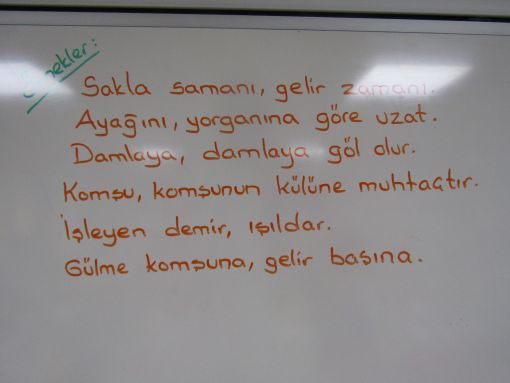 Örnekler:
Sakla samanı, gelir zamanı.
Ayağını, yorganına göre uzat.
Damlaya, damlaya göl olur.
Komşu, komşunun külüne muhtaçtır.
İşleyen demir, ışıldar.
Gülme komşuna, gelir başına.